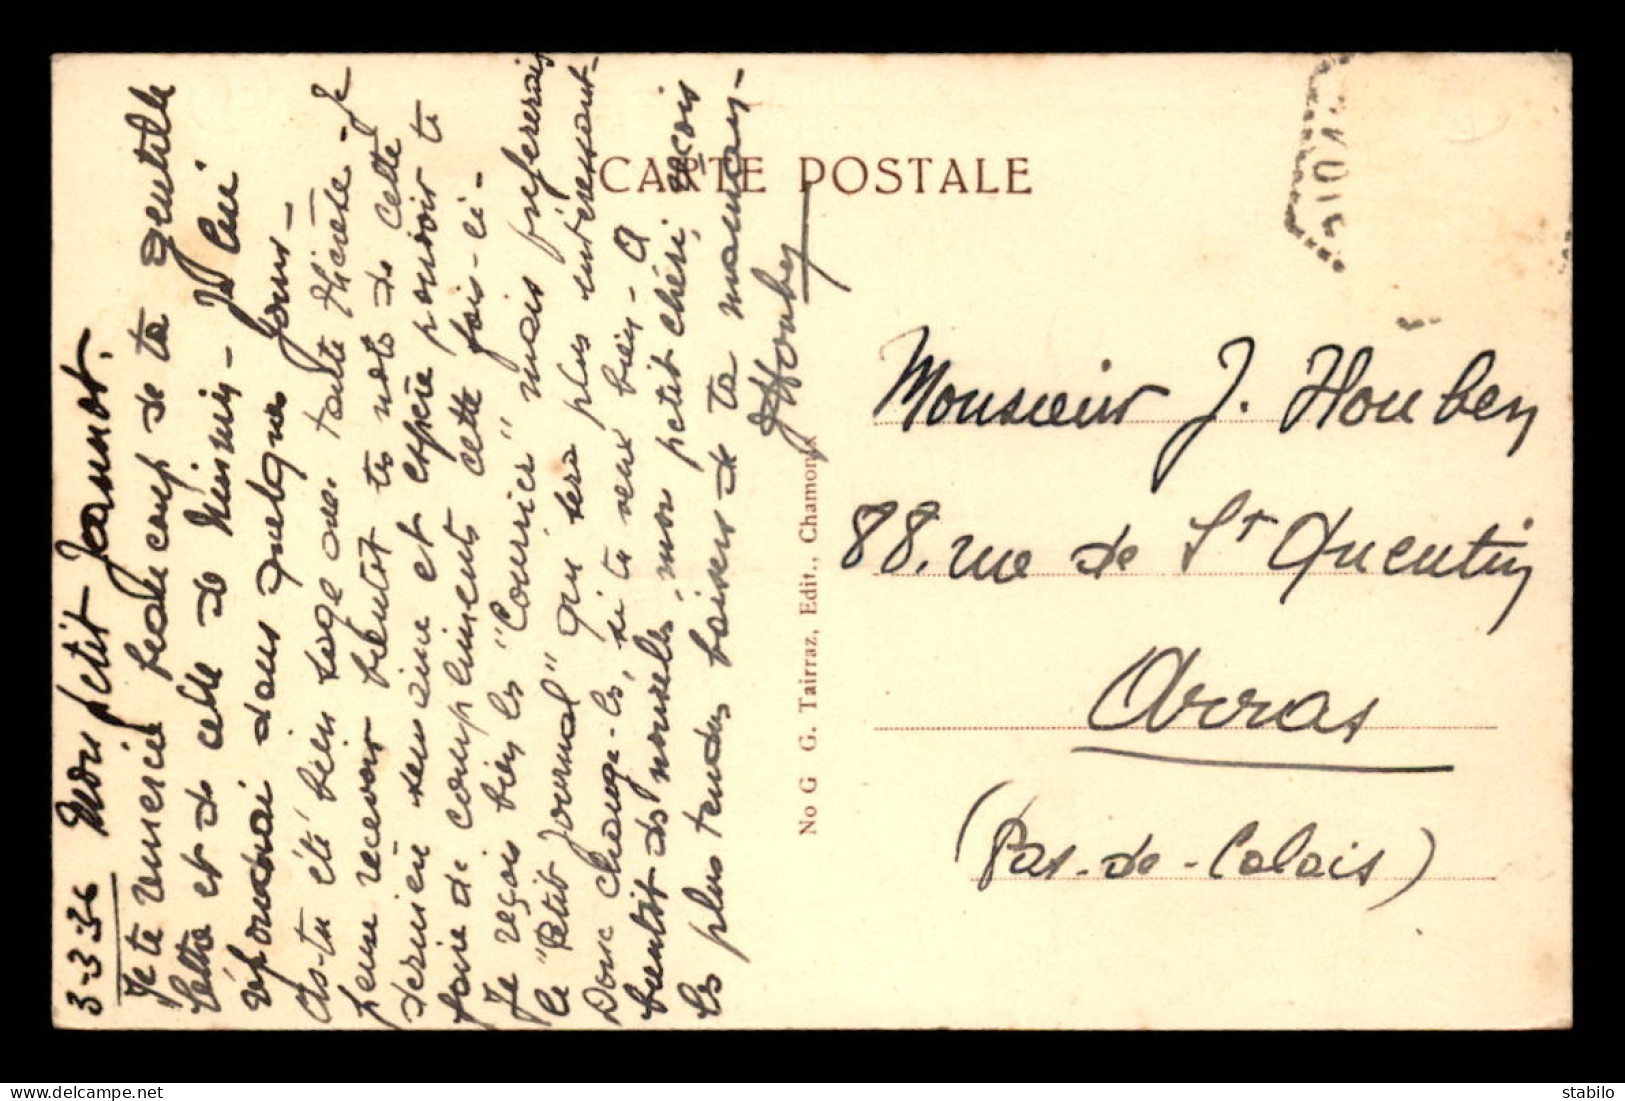 3-3-36 Mon petit Jeannot.
Je te remercie beaucoup de ta gentille
lettre et de celle de Mimin - Je lui
répondrai dans quelques jours -
As-tu été bien sage avec tante Thérèse - Je
pense recevoir bientôt tes notes de cette
dernière semaine et espère pouvoir te
faire de compliments cette fois-ci -
Je reçois bien les "Courrier" mais préférerais
le "Petit Journal" qui sera plus intéressant -
Donc change-les, si tu veux bien - A
bientôt de nouvelles, mon petit chéri, reçois
les plus tendres baisers de ta maman -
JHouben
CARTE POSTALE
No G G. Tairraz, Edit., Chamonix
Monsieur J. Houben
88. rue de St Quentin
Arras
(Pas-de-Calais)
stabilo